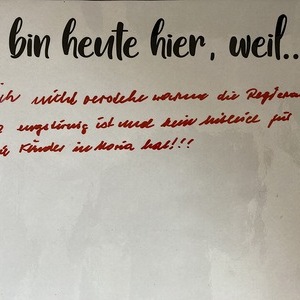 bin heute hier, weil..
ich nicht verstehe warum die Regieru
ungläubig ist und kein Mitleid für
die Kinder in Moria hat!!!